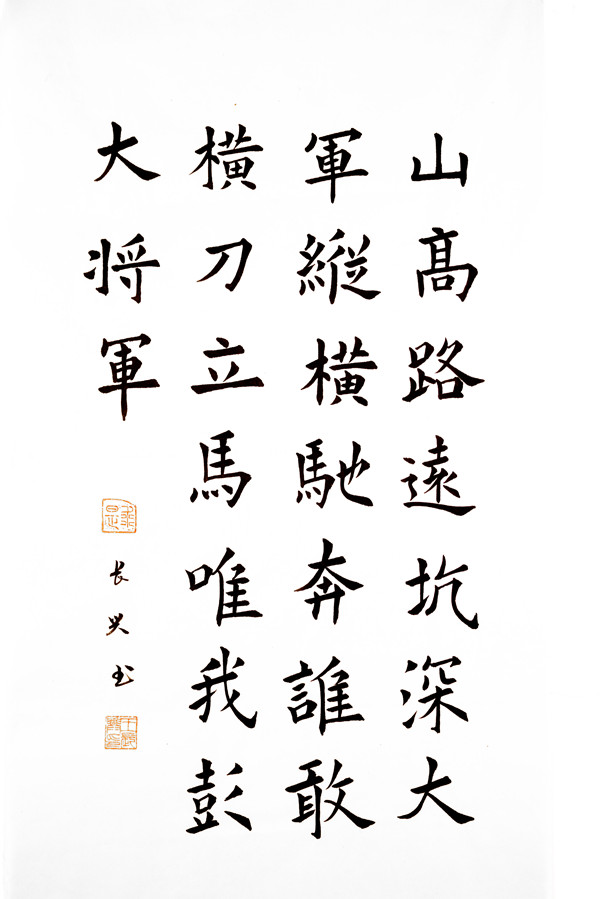 山高路遠坑深大
軍縱橫馳奔誰敢
橫刀立馬唯我彭
大将軍
长兴书